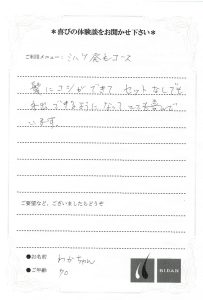 ＊喜びの体験談をお聞かせ下さい＊
ご利用メニュー：ミルク発毛コース
髪にコシができて セットなしでも
外出できるようになって とても喜んで
います。
ご要望など、ございましたらどうぞ
●お名前 わかちゃん
●ご年齢 70
BIDAN